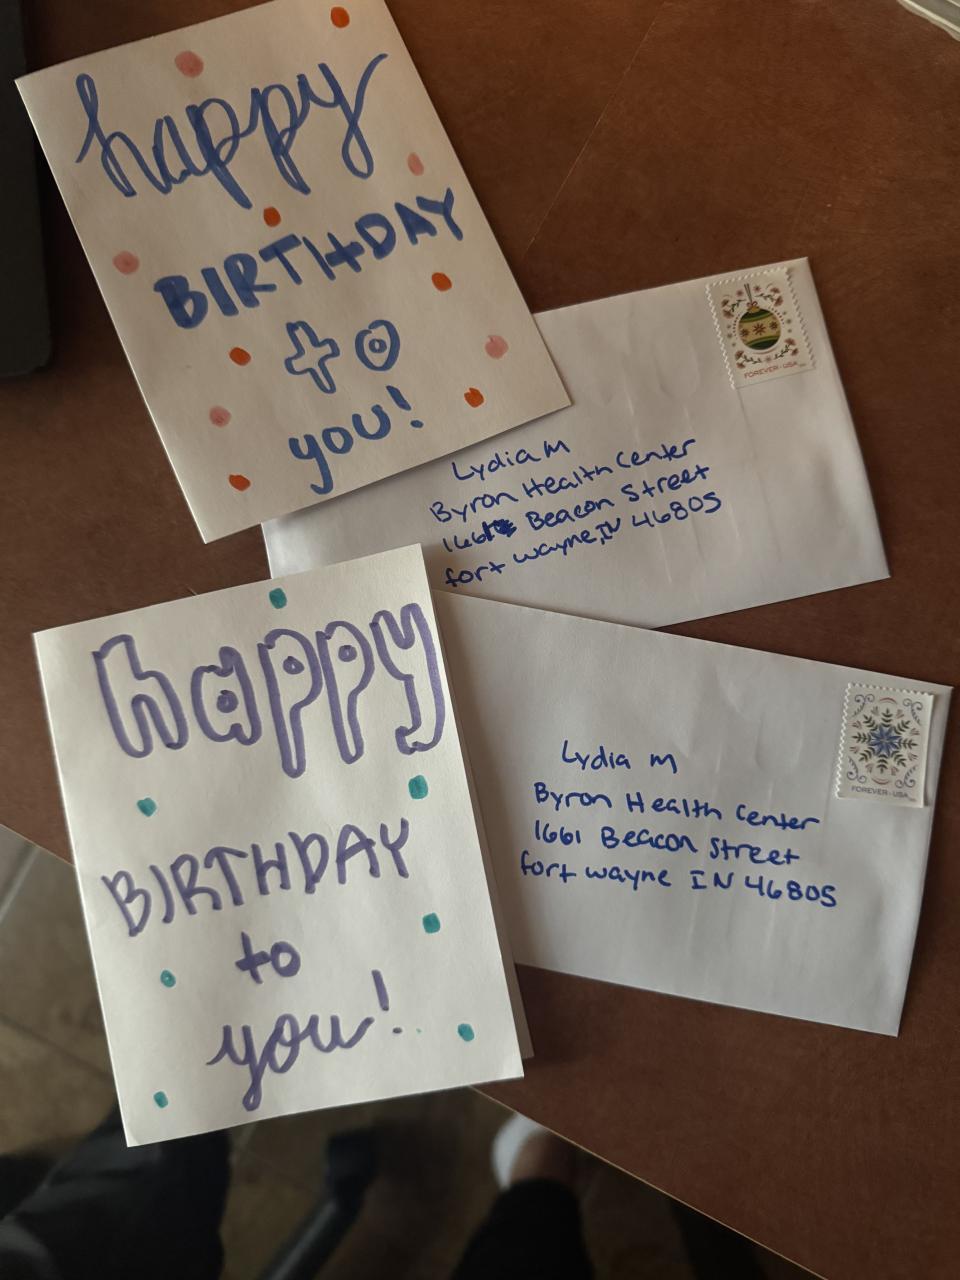 happy
BIRTHDAY
to
you!
FOREVER-USA
Lydia M
Byron Health Center
1661 Beacon Street
fort wayne, IN 46805
happy
BIRTHDAY
to
you!
FOREVER-USA
Lydia M
Byron Health Center
1661 Beacon Street
fort wayne IN 46805